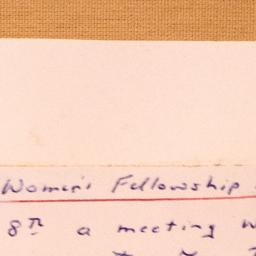 Women's Fellowship
8th a meeting